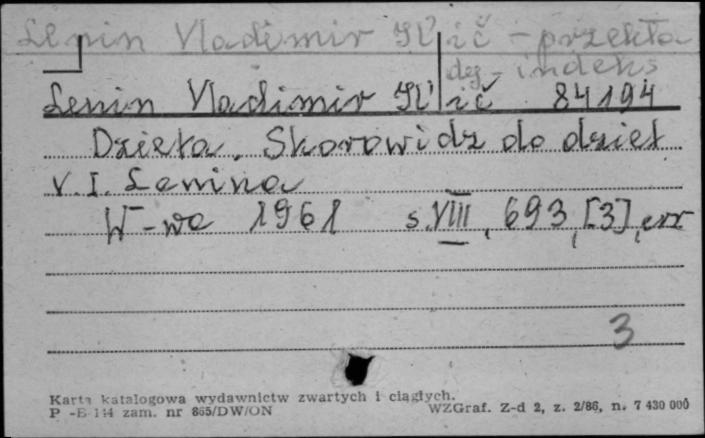 Lenin Vladimir Il'ič - przekła
dy - indeks
Lenin Vladimir Il'ič 84194
Dzieła. Skorowidz do dzieł
V. I. Lenina
W-wa 1961 s. VIII, 693, [3], err
3
Karta katalogowa wydawnictw zwartych i ciągłych.
P -B 144 zam. nr 865/DW/ON WZGraf. Z-d 2, z. 2/86, n. 7 430 000